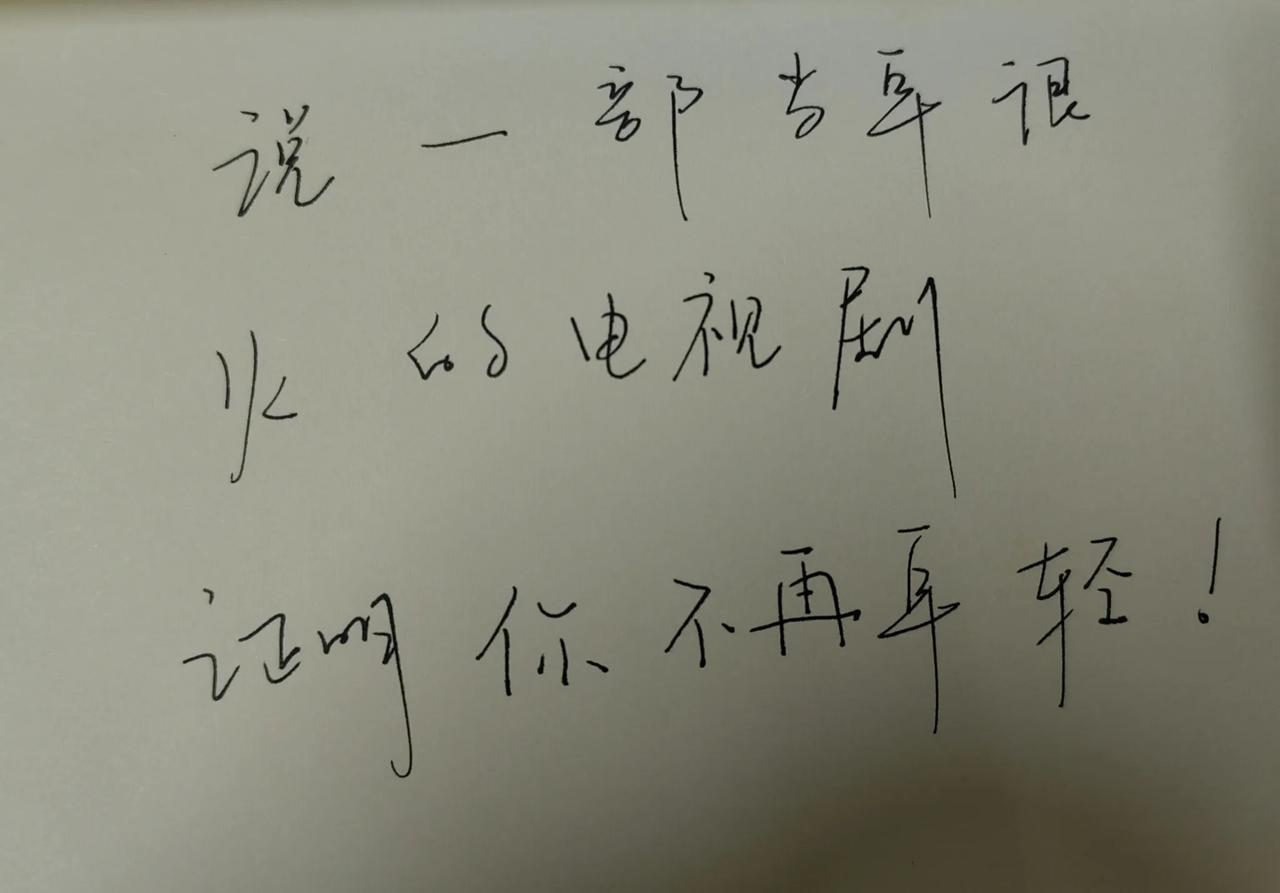 说一部当年很
火的电视剧
证明你不再年轻!